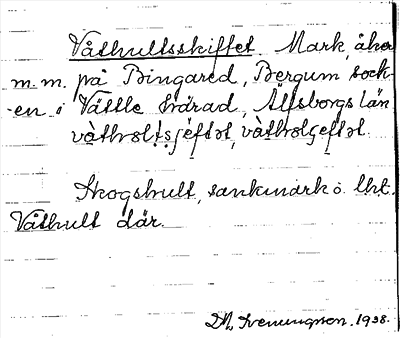 Våthultsskiffet. Mark, åker
m.m. på Bingared, Bergum sock-
en i Vättle härad, Älfsborgs län
vàthολtsʃéftət, vàthολʃeftət.
Skogshult, sankmark ö. lht.
Våthult där.
Sveningson. 1938.